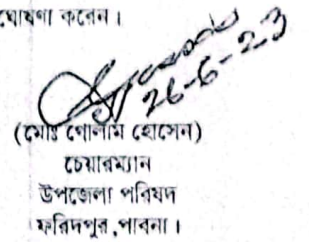 ঘোষণা করেন।
26-6-23
(মোঃ গোলাম হোসেন)
চেয়ারম্যান
উপজেলা পরিষদ
ফরিদপুর,পাবনা।